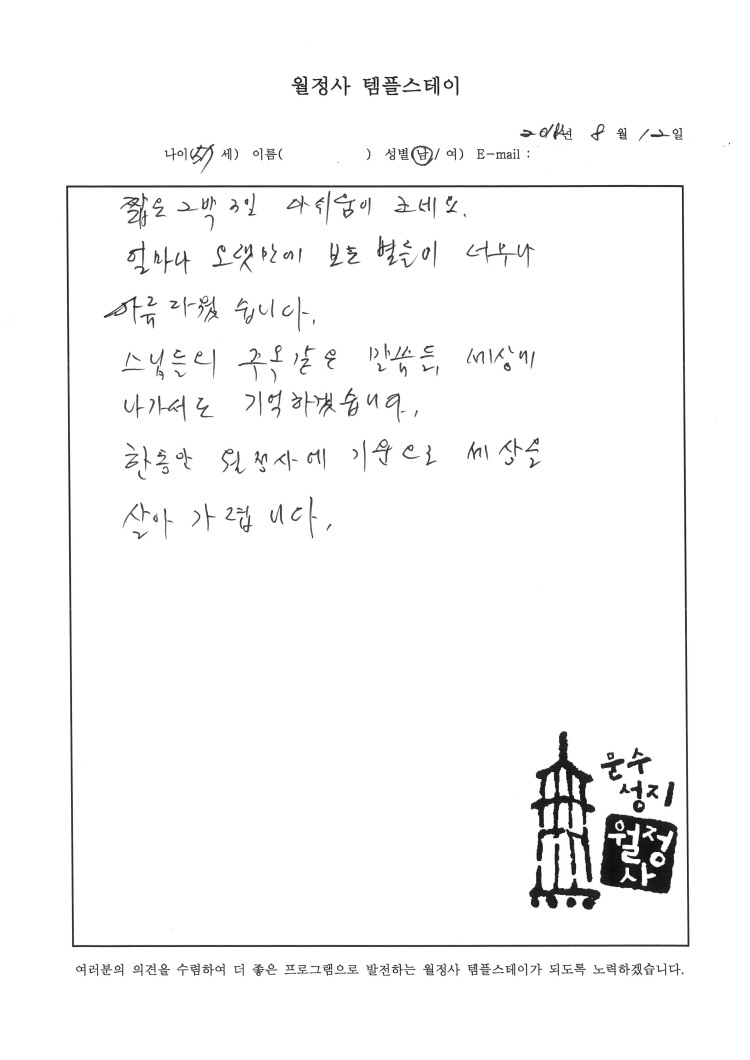 월정사 템플스테이
2018년 8 월 12일
나이(57 세) 이름( ) 성별(남/ 여) E-mail :
짧은 2박 3일 아쉬움이 크네요.
얼마나 오랫만에 보는 별들이 너무나
아름다웠습니다.
스님들의 주옥같은 말씀들, 세상에
나가서도 기억하겠습니다.
한동안 월정사에 기운으로 세상을
살아 가렵니다.
문수
성지
월정
사
여러분의 의견을 수렴하여 더 좋은 프로그램으로 발전하는 월정사 템플스테이가 되도록 노력하겠습니다.